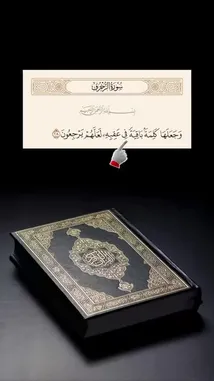 سُورَةُ الزُّخْرُفِ
بِسْمِ اللَّهِ الرَّحْمَٰنِ الرَّحِيمِ
وَجَعَلَهَا كَلِمَةً بَاقِيَةً فِي عَقِبِهِ لَعَلَّهُمْ يَرْجِعُونَ ٢٨